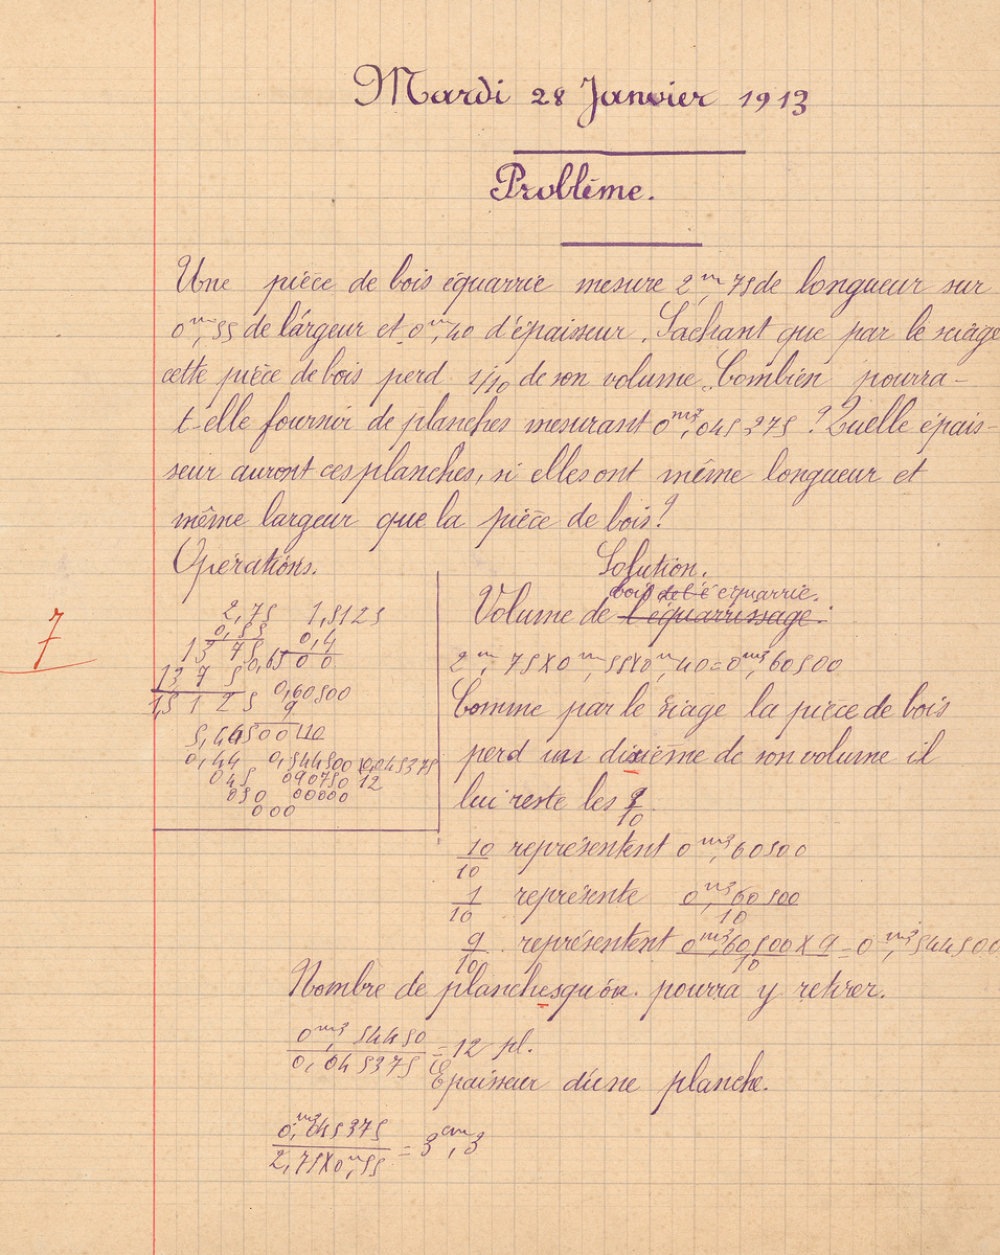 Mardi 28 Janvier 1913
Problème.
Une pièce de bois équarrie mesure 2m,75 de longueur sur
0m,55 de largeur et 0m,40 d'épaisseur. Sachant que par le sciage
cette pièce de bois perd 1/10 de son volume. Combien pourra-
t-elle fournir de planches mesurant 0m3,045 375 ? Quelle épais-
seur auront ces planches, si elles ont même longueur et
même largeur que la pièce de bois?
Opérations.
2,75 1,5125
0,55 0,4
13 75 0,65 0 0
13 7 5 0,60500
1,5 1 2 5 9
5,44500 10
0,44 0,544500 0,045375
045 090750 12
050 00000
000
7
Solution.
bois équarrie.
Volume de l'équarrissage:
2m,75X0m,55X0m,40=0m3,60500
Comme par le sciage la pièce de bois
perd un dixième de son volume il
lui reste les 9/10
10/10 représentent 0m3,60500
1/10 représente 0m3,60500/10
9/10 représentent 0m3,60500X9/10=0m3,544500
Nombre de planches qu'on pourra y retirer.
0m3,54450/0,045375=12 pl.
Épaisseur d'une planche.
0,m3045375/2,75X0m,55=3cm,3